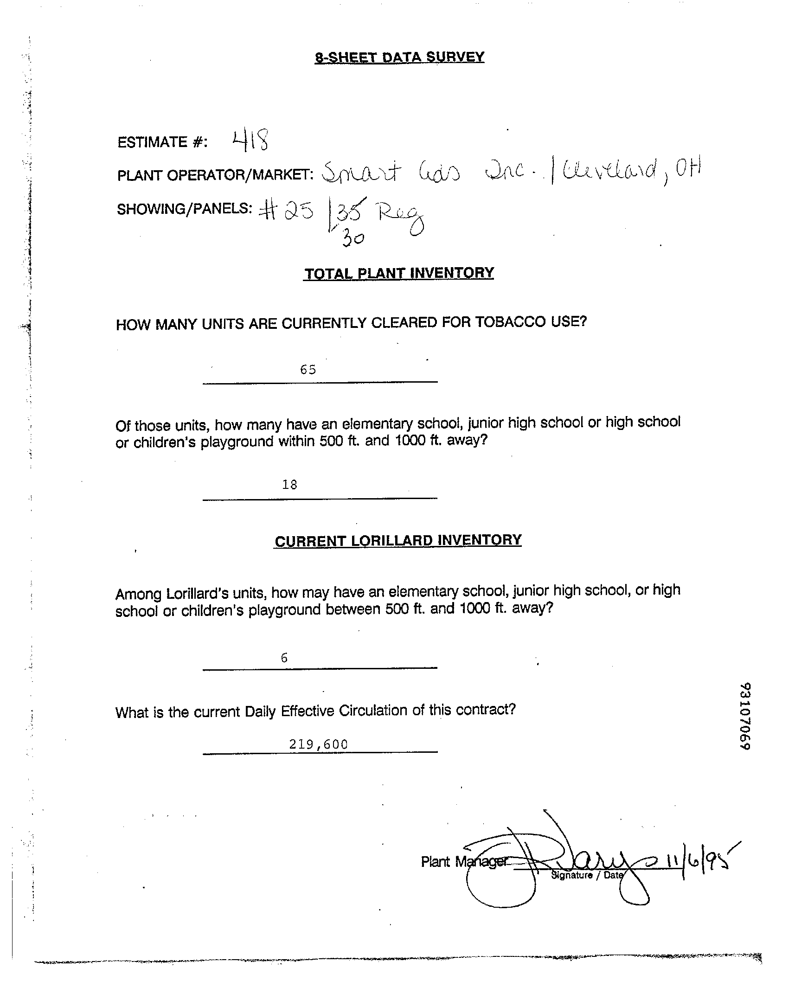 8-SHEET DATA SURVEY
ESTIMATE #: 418
PLANT OPERATOR/MARKET: Smart Ads Inc. / Cleveland, OH
SHOWING/PANELS: #25 / 35 Reg
30
TOTAL PLANT INVENTORY
HOW MANY UNITS ARE CURRENTLY CLEARED FOR TOBACCO USE?
65
Of those units, how many have an elementary school, junior high school or high school
or children's playground within 500 ft. and 1000 ft. away?
18
CURRENT LORILLARD INVENTORY
Among Lorillard's units, how may have an elementary school, junior high school, or high
school or children's playground between 500 ft. and 1000 ft. away?
6
What is the current Daily Effective Circulation of this contract?
219,600
93107069
Plant Manager 11/6/95
Signature / Date